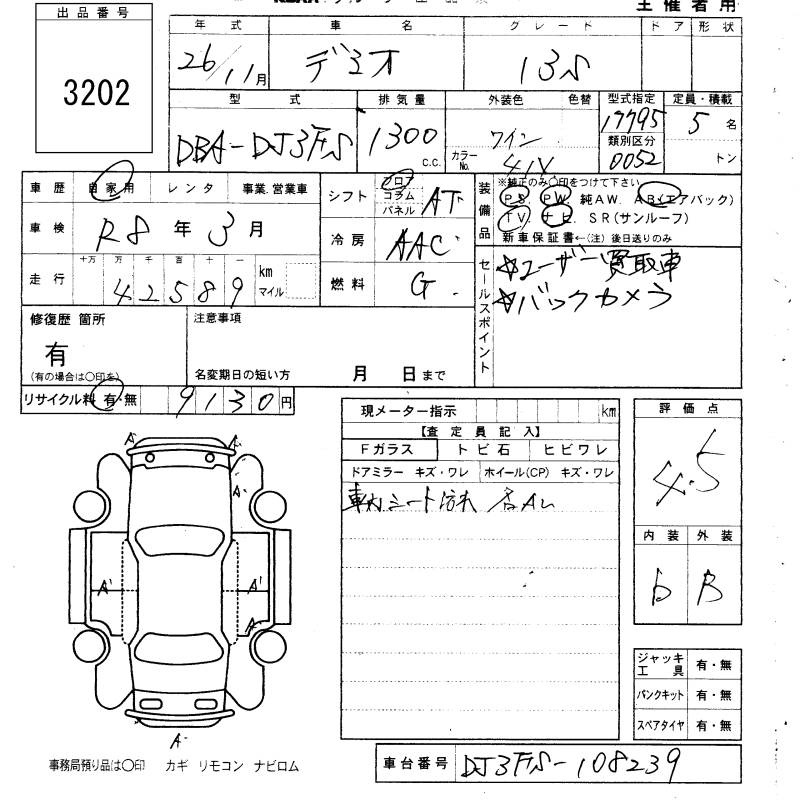 主催者用
出品番号
3202
年式 車名 グレード ドア 形状
26/11月 デミオ 13S
型式 排気量 外装色 色替 型式指定 定員・積載
DBA-DJ3FS 1300 c.c. ワイン 17795 5名
カラーNo. 41V 類別区分 0052 トン
車歴 自家用 レンタ 事業.営業車
シフト フロア コラム パネル AT
装備品 ※純正のみ〇印をつけて下さい
PS. PW. 純AW. AB(エアバック)
TV. ナビ. SR(サンルーフ)
新車保証書←(注) 後日送りのみ
車検 R8年3月
冷房 AAC
走行 十万 万 千 百 十 一
42589 km マイル
燃料 G
セールスポイント ☆ユーザー買取車
☆バックカメラ
修復歴 箇所
有
(有の場合は〇印を)
注意事項
名変期日の短い方 月 日まで
リサイクル料 有・無 9130円
現メーター指示 km
【査定員記入】
Fガラス トビ石 ヒビワレ
ドアミラー キズ・ワレ ホイール(CP) キズ・ワレ
車内シート汚れ
評価点
4.5
内装 外装
b B
A'
A'
A
A'
A'
A
A
ジャッキ工具 有・無
パンクキット 有・無
スペアタイヤ 有・無
事務局預り品は〇印 カギ リモコン ナビロム
車台番号 DJ3FS-108239